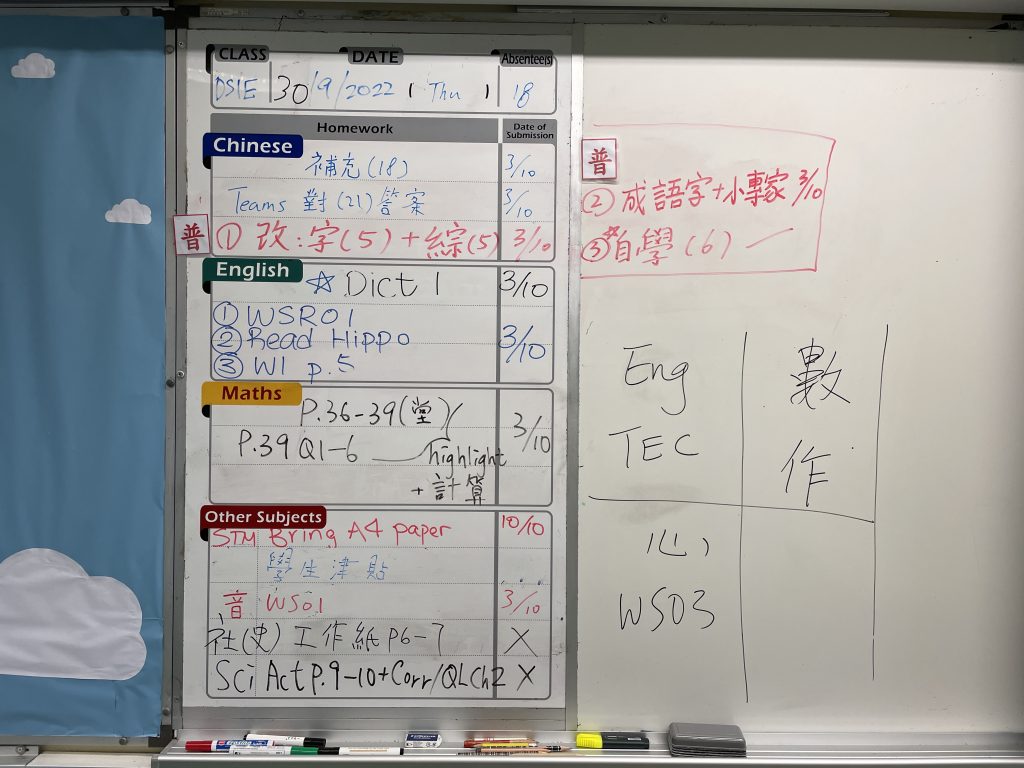 CLASS DATE Absentee(s)
DSIE 30/9/2022 Thu 18
Homework Date of Submission
Chinese
補充(18) 3/10
Teams 對(21)答案 3/10
普 ① 改:字(5)+綜(5) 3/10
English
☆ Dict 1 3/10
① WSR01
② Read Hippo 3/10
③ W1 p.5
Maths
P.36-39(堂) 3/10
P.39 Q1-6 highlight
+計算
Other Subjects
STM Bring A4 paper 10/10
學生津貼 ...
音 WS01 3/10
社(史)工作紙 P6-7 X
Sci Act P.9-10+Corr/QL Ch2 X
普
② 成語字+小專家 3/10
③ 自學(6)
Eng 數
TEC 作
心
WS03